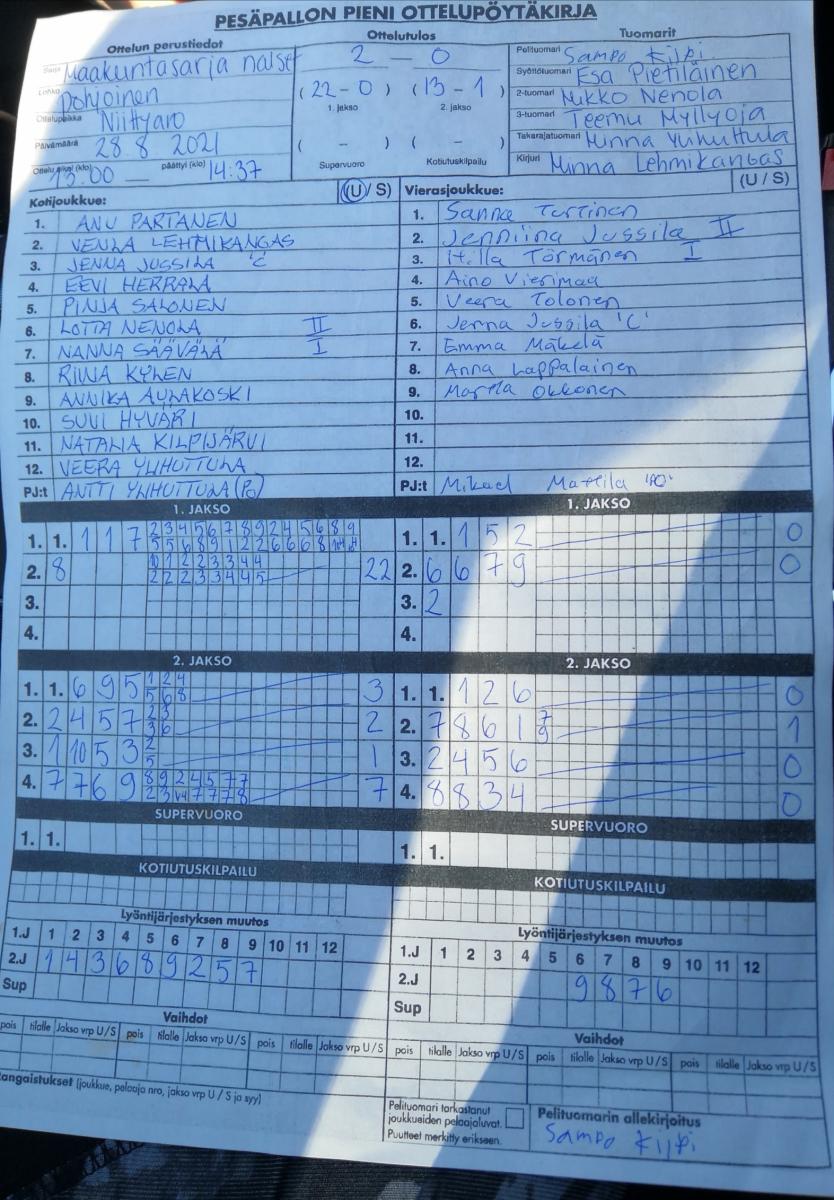 PESÄPALLON PIENI OTTELUPÖYTÄKIRJA
Ottelun perustiedot Ottelutulos Tuomarit
Sarja Maakuntasarja naiset 2 - 0 Pelituomari Sampo Kilpi
Lohko Pohjoinen (22-0) (13-1) Syöttötuomari Esa Pietiläinen
1. jakso 2. jakso
Ottelupaikka Niittyaro 2-tuomari Mikko Nenola
Päivämäärä 28 8 2021 ( - ) ( - ) 3-tuomari Teemu Myllyoja
Supervuoro Kotiutuskilpailu Takarajatuomari Minna Ylihuttula
Ottelu alkoi (klo) 13.00 päättyi (klo) 14:37 Kirjuri Minna Lehmikangas
Kotijoukkue: (U/S) Vierasjoukkue: (U/S)
1. ANU PARTANEN 1. Sanna Turtinen
2. VENLA LEHMIKANGAS 2. Jenniina Jussila II
3. JENNA JUSSILA 'C' 3. Hilla Törmänen I
4. EEVI HERRALA 4. Aino Vierimaa
5. PINJA SALONEN 5. Veera Tolonen
6. LOTTA NENOLA II 6. Jenna Jussila 'C'
7. NANNA SÄÄVÄLÄ I 7. Emma Mäkelä
8. RIINA KYLEN 8. Anna Lappalainen
9. ANNIKA AULAKOSKI 9. Martta Okkonen
10. SUVI HYVÄRI 10.
11. NATALIA KILPIJÄRVI 11.
12. VEERA YLIHUTTULA 12.
PJ:t ANTTI YLIHUTTULA (PO) PJ:t Mikael Mattila 'PO'
1. JAKSO 1. JAKSO
1. 1. 1 1 7 2 3 4 5 6 7 8 9 2 4 5 6 8 9 1. 1. 1 5 2 0
5 5 6 8 9 1 2 2 6 6 6 8
2. 8 10 1 2 2 3 3 4 4 22 2. 6 6 7 9 0
2 2 2 3 3 4 4 5
3. 3. 2
4. 4.
2. JAKSO 2. JAKSO
1. 1. 6 9 5 1 2 4 3 1. 1. 1 2 6 0
5 6 8
2. 2 4 5 7 2 3 2 2. 7 8 6 1 7 1
3 6 9
3. 1 10 5 3 2 1 3. 2 4 5 6 0
5
4. 7 7 6 9 8 9 2 4 5 7 7 7 4. 8 8 3 4 0
2 3 7 7 7 8
SUPERVUORO SUPERVUORO
1. 1. 1. 1.
KOTIUTUSKILPAILU KOTIUTUSKILPAILU
Lyöntijärjestyksen muutos Lyöntijärjestyksen muutos
1.J 1 2 3 4 5 6 7 8 9 10 11 12 1.J 1 2 3 4 5 6 7 8 9 10 11 12
2.J 1 4 3 6 8 9 2 5 7 2.J 9 8 7 6
Sup Sup
Vaihdot Vaihdot
pois tilalle Jakso vrp U/S pois tilalle Jakso vrp U/S pois tilalle Jakso vrp U/S pois tilalle Jakso vrp U/S pois tilalle Jakso vrp U/S pois tilalle Jakso vrp U/S
angaistukset (joukkue, pelaaja nro, jakso vrp U/S ja syy)
Pelituomari tarkastanut Pelituomarin allekirjoitus
joukkueiden pelaajaluvat. Sampo Kilpi
Puutteet merkitty erikseen.